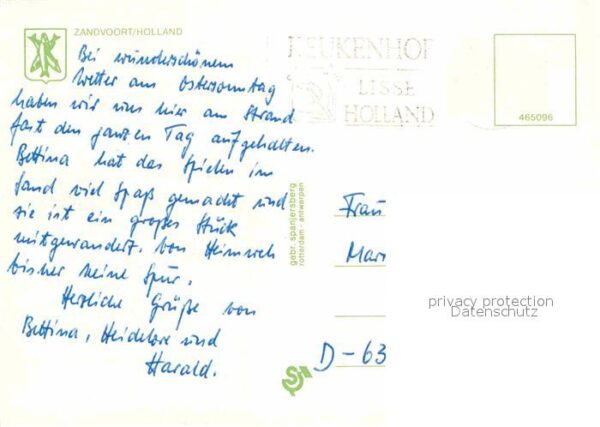 ZANDVOORT/HOLLAND
Bei wunderschönem
Wetter am Ostersonntag
haben wir uns hier am Strand
fast den ganzen Tag aufgehalten.
Bettina hat das Spielen im
Sand viel Spaß gemacht und
sie ist ein großes Stück
mitgewandert. Von Heimweh
bisher keine Spur.
Herzliche Grüße von
Bettina, Heidelore und
Harald.
KEUKENHOF
LISSE
HOLLAND
465096
gebr. spanjersberg
rotterdam - antwerpen
Frau
Mar
D-63
privacy protection
Datenschutz